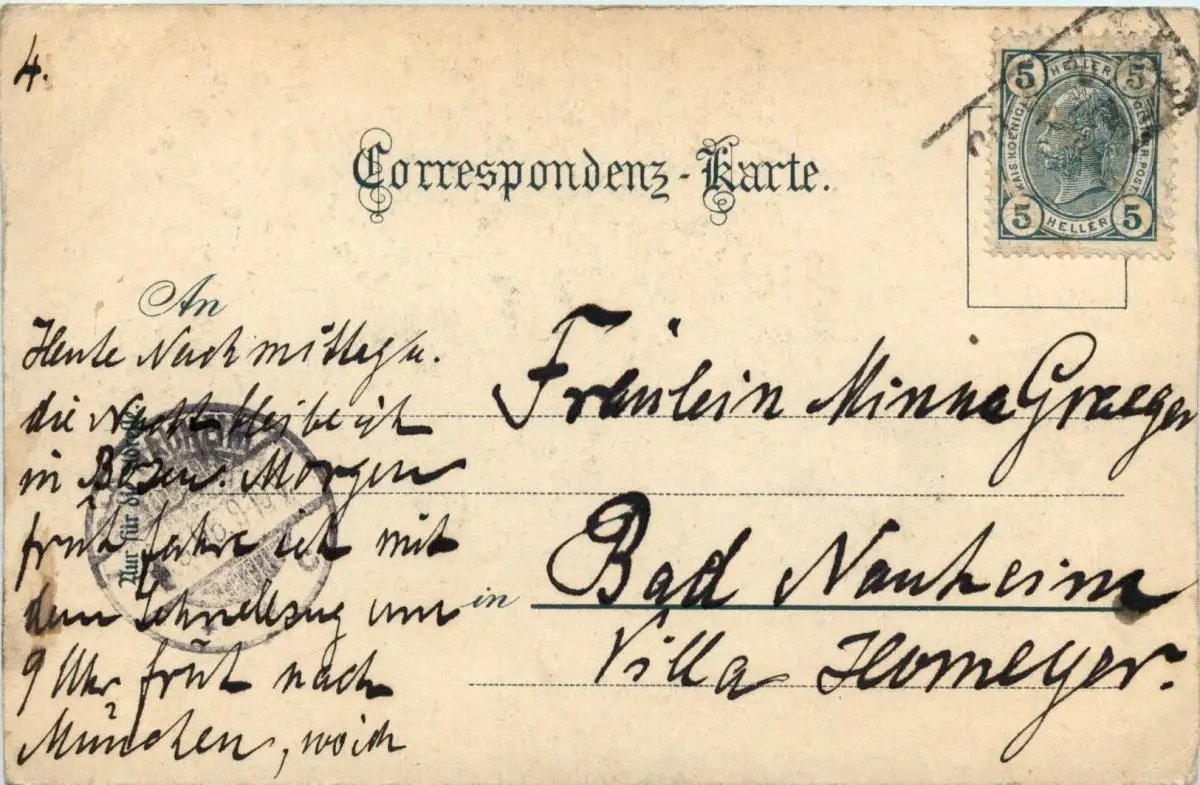 4.
5 HELLER 5
KAIS. KOENIGL. OESTERR. POST.
5 HELLER 5
Correspondenz-Karte.
An
Heute Nachmittag u.
die Nacht bleibe ich
in Bozen. Morgen
früh fahre ich mit
dem Schnellzug um
9 Uhr früh nach
München, wo ich
Nur für die Adresse
Fräulein Minna Graeger
in Bad Nauheim
Villa Homeyer.